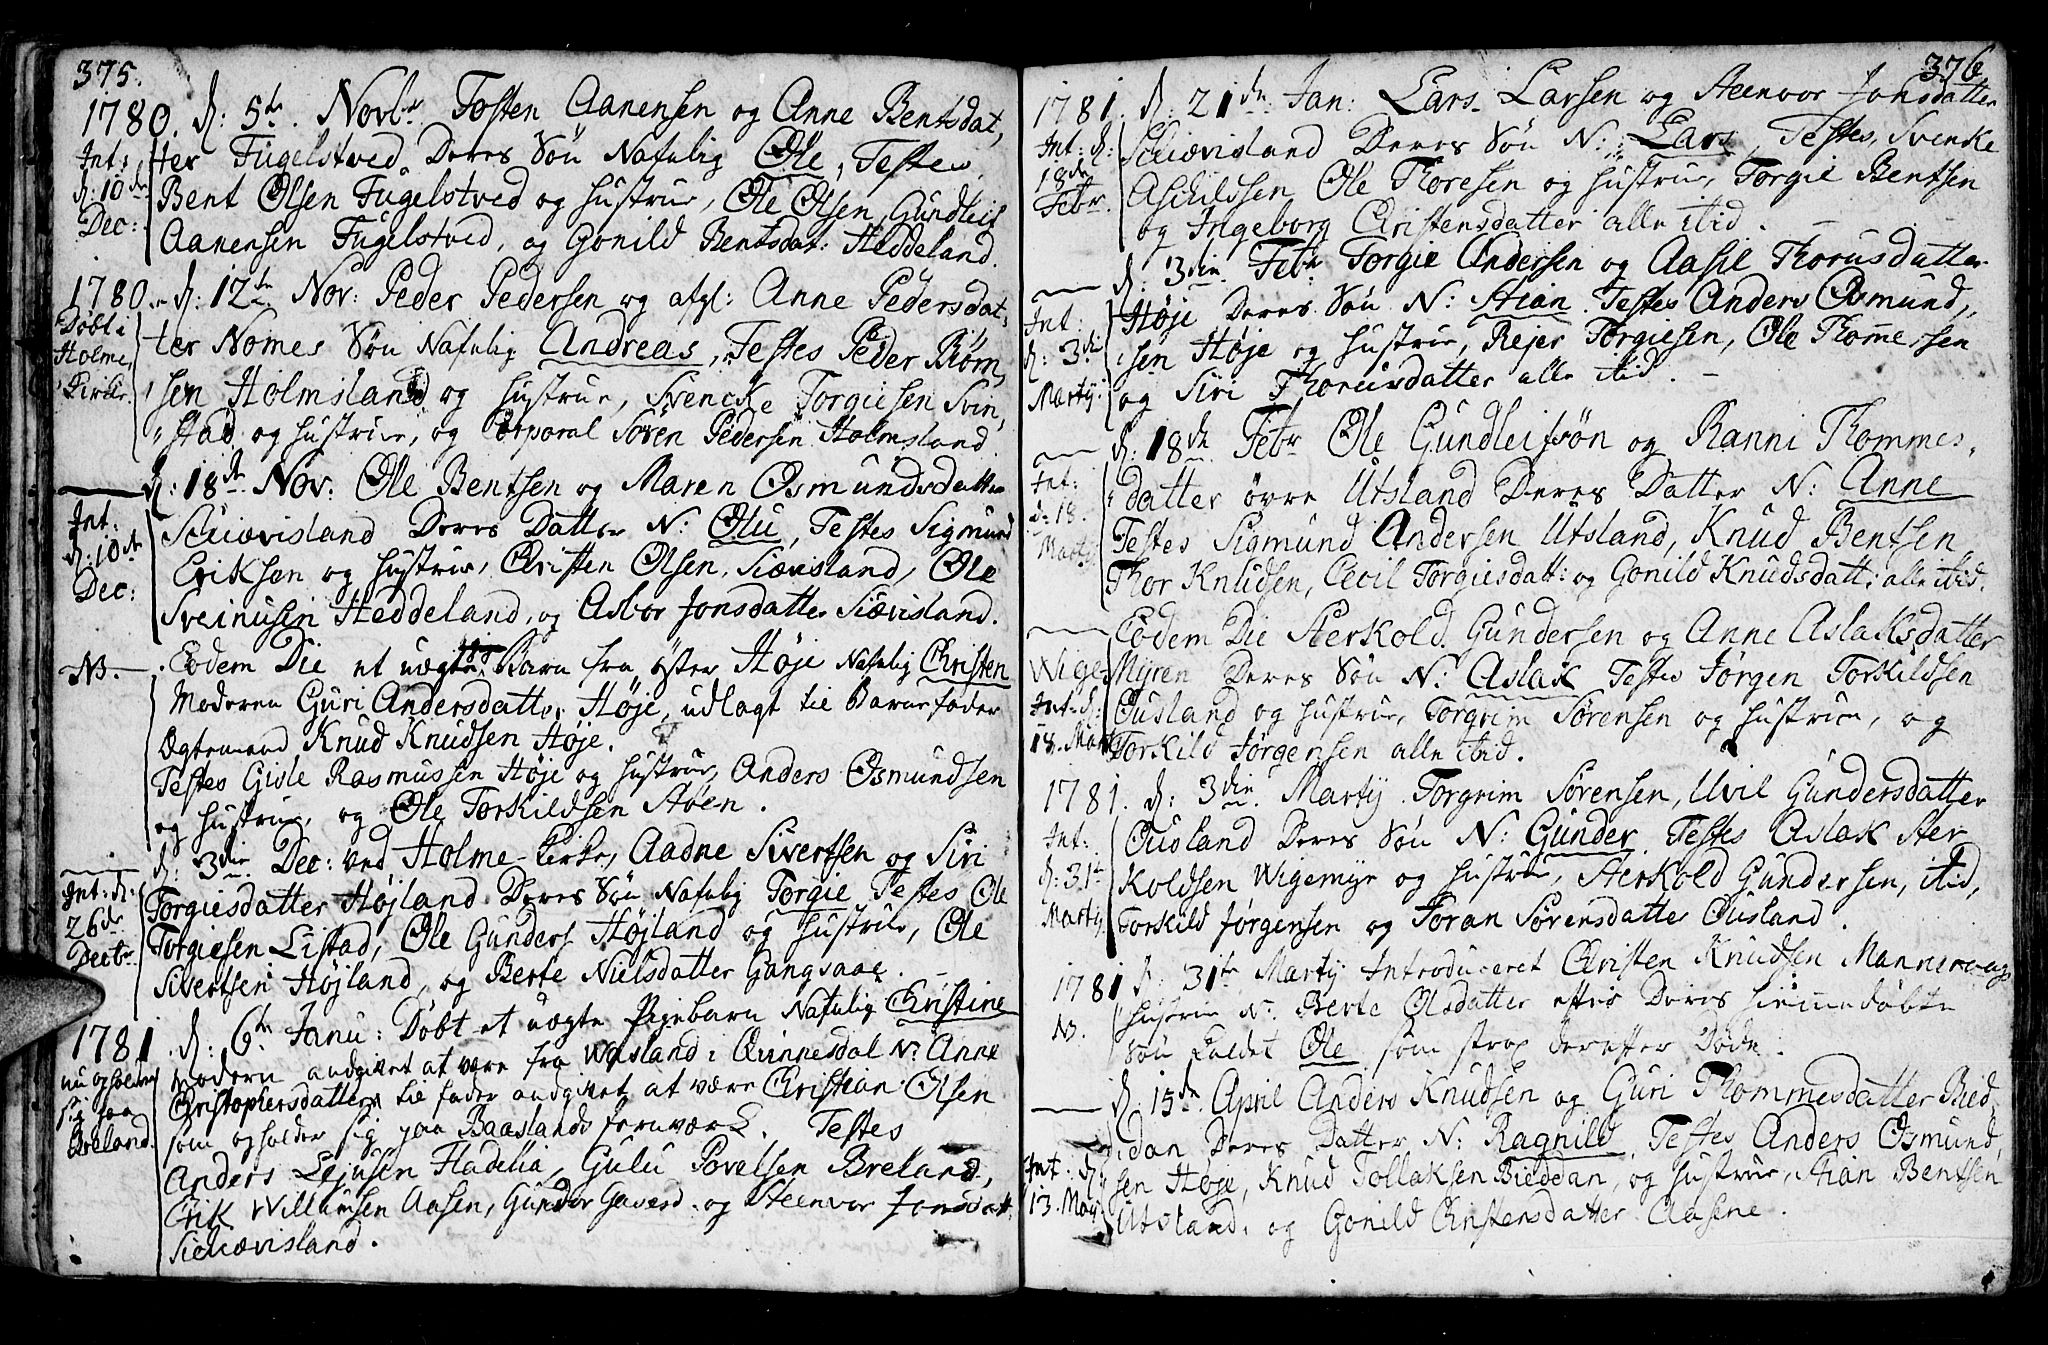 375.
1780. d: 5te. Novbr Tosten Aanensen og Anne Bentsdat,
Int: ter Fugelstved Deres Søn Nafnlig Ole, Testes
d: 10de Bent Olsen Fugelstved og Hustrue, Ole Olsen, Gundleif
Dec: Aanensen Fugelstved, og Gonild Bentsdat: Heddeland.
1780. d: 12te Nov: Peder Pedersen og afgl: Anne Pedersdat,
Døbt i ter Nomes Søn Nafnlig Andreas, Testes Peder Biørn,
Holme, sen Holmsland og Hustrue, Svencke Torgiesen Svin,
Kirke. stad og Hustrue, og Corporal Søren Pedersen Holmsland
d: 18de Nov: Ole Bentsen og Maren Osmundsdatter
Int: Schiævisland Deres Datter N: Olu, Testes Sigmund
d: 10de Eriksen og Hustrue, Christen Olsen, Siævisland, Ole
Dec: Sveinusen Heddeland, og Asbor Jonsdatter Siævisland.
NB. Eodem Die et uægte Barn fra Øster Høje Nafnlig Christen
Moderen Guri Andersdatter Høje, udlagt til Barnefader
Ægtemand Knud Knudsen Høje.
Testes Gisle Rasmussen Høje og Hustrue, Anders Osmundsen
og Hustrue, og Ole Torkildsen Støen.
d: 3die Dec: ved Holme Kirke, Aadne Sivertsen og Siri
Int: d: Torgiesdatter Højland Deres Søn Nafnlig Torgie Testes Ole
26de Torgiesen Listad, Ole Gunders Højland og Hustrue, Ole
Decbr Sivertsen Højland, og Berte Nielsdatter Gangsaae.
1781 d: 6te Janu: Døbt et uægte Pigebarn Nafnlig Christine
nu opholder Modern andgivet at være fra Wasland i Qvinnesdal N: Anne
sig paa Christophersdatter, til fader andgivet at være Christian Olsen
Breland. som opholder sig paa Baaslands Jernværk. Testes
Anders Lejusen Hadelia, Gulu Povelsen Breland,
Erik Willumsen Aasen, Gunder Gaverd. og Steenvor Jonsdatt.
Sichævisland.
376
1781. d: 21de Jan: Lars Larsen og Steenvor Jonsdatter
Int: d: Schiævisland Deres Søn N: Lars, Testes, Svenke
18de Aschildsen Ole Thoresen og Hustrue, Torgie Bentsen
Febr. og Ingeborg Christensdatter alle itid.
d: 3die Febr Torgie Andersen og Aasil Thorusdatter
Int: Høje Deres Søn N: Stian Testes Anders Osmund,
d: 3die sen Høje og Hustrue, Rejer Torgiesen, Ole Thommesen
Martij. og Siri Thorusdatter alle itid.
d: 18de Febr Ole Gundleifsøn og Ranni Thommes,
Int: datter øvre Utsland Deres Datter N: Anne
d: 18. Testes Sigmund Andersen Utsland, Knud Bentsen
Martij Thor Knudsen, Cecil Torgiesdatt: og Gonild Knudsdatt: alle itid.
Eodem Die Sterkold Gundersen og Anne Aslaksdatter
Wige, Myren Deres Søn N: Aslak Testes Jørgen Torkildsen
Int. d: Ousland og Hustrue, Torgrim Sørensen og Hustrue, og
18. Mart Torkild Jørgensen alle itid.
1781. d: 3die Martij Torgrim Sørensen, Uvil Gundersdatter
Int: Ousland Deres Søn N: Gunder Testes Aslak Ster
d: 31te koldsen Wigemyr og Hustrue, Sterkold Gundersen, itid,
Martij Torkild Jørgensen og Joran Sørensdatter Ousland.
1781 d: 31te Martij Introduceret Christen Knudsen Mannevogs
NB. Hustrue N: Berte Olsdatter efter Deres hiemmedøbte
Søn Kaldet Ole som strax derefter Døde.
d: 15de April Anders Knudsen og Guri Thommesdatter Bied,
dan Deres Datter N: Ragnild, Testes Anders Osmund,
Int. d: sen Høje, Knud Tollaksen Bieddan, og Hustrue, Stian Bentsen
13. Maij Utsland, og Gonild Christensdatter Aasene.